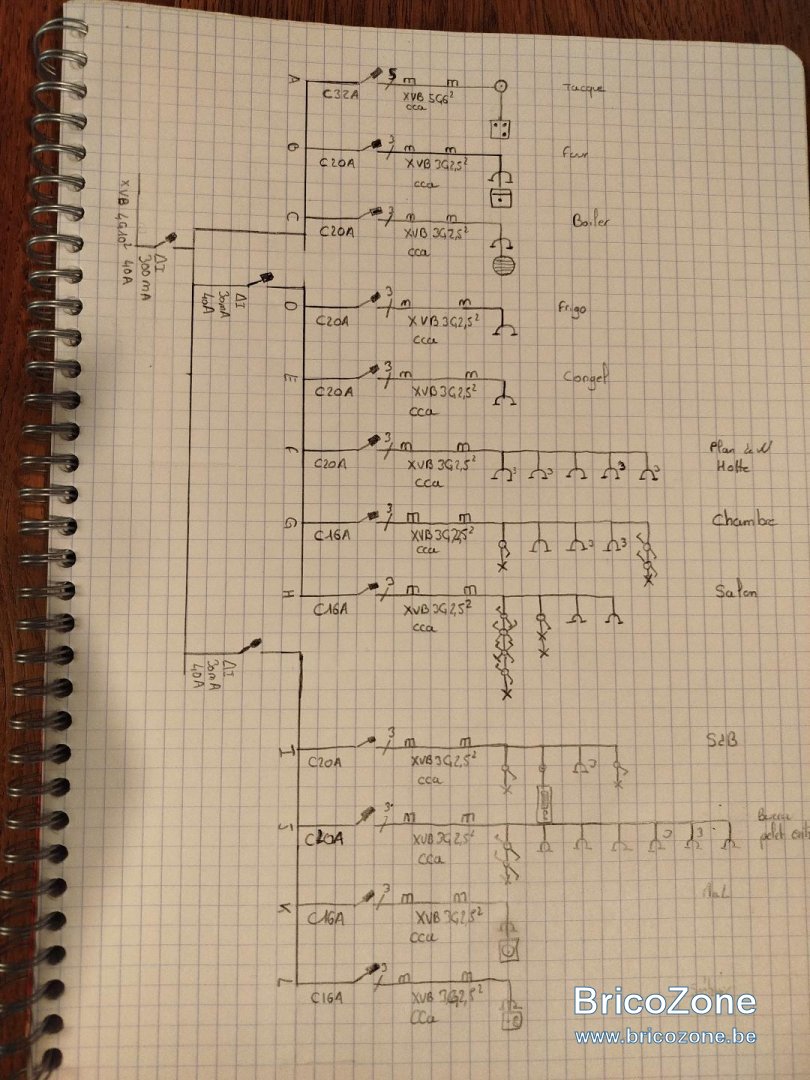 A
C32A
5
XVB 5G6²
cca
Tacque
B
C20A
3
XVB 3G2,5²
cca
Four
C
C20A
3
XVB 3G2,5²
cca
Boiler
XVB 4G10²
40A
ΔI
300mA
ΔI
30mA
40A
D
C20A
3
XVB 3G2,5²
cca
Frigo
E
C20A
3
XVB 3G2,5²
cca
Congel
F
C20A
3
XVB 3G2,5²
cca
3
3
3
3
Plan de
Hotte
G
C16A
3
XVB 3G2,5²
cca
3
3
Chambre
H
C16A
3
XVB 3G2,5²
cca
Salon
ΔI
30mA
40A
I
C20A
3
XVB 3G2,5²
cca
3
SdB
J
C20A
3
XVB 3G2,5²
cca
3
3
K
C16A
3
XVB 3G2,5²
cca
L
C16A
3
XVB 3G2,5²
cca
BricoZone
www.bricozone.be